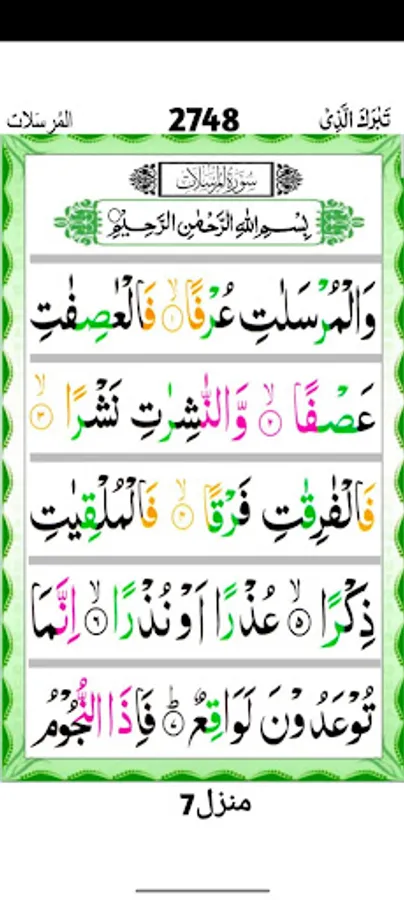 تَبٰرَكَ الَّذِیْ 2748 المُرسَلات
سُوْرَةُ الْمُرْسَلَات
بِسْمِ اللهِ الرَّحْمٰنِ الرَّحِيْمِ
وَالْمُرْسَلٰتِ عُرْفًا ۙ﴿۱﴾ فَالْعٰصِفٰتِ
عَصْفًا ۙ﴿۲﴾ وَّالنّٰشِرٰتِ نَشْرًا ۙ﴿۳﴾
فَالْفٰرِقٰتِ فَرْقًا ۙ﴿۴﴾ فَالْمُلْقِيٰتِ
ذِكْرًا ۙ﴿۵﴾ عُذْرًا اَوْ نُذْرًا ۙ﴿۶﴾ اِنَّمَا
تُوْعَدُوْنَ لَوَاقِعٌ ؕ﴿۷﴾ فَاِذَا النُّجُوْمُ
منزل 7